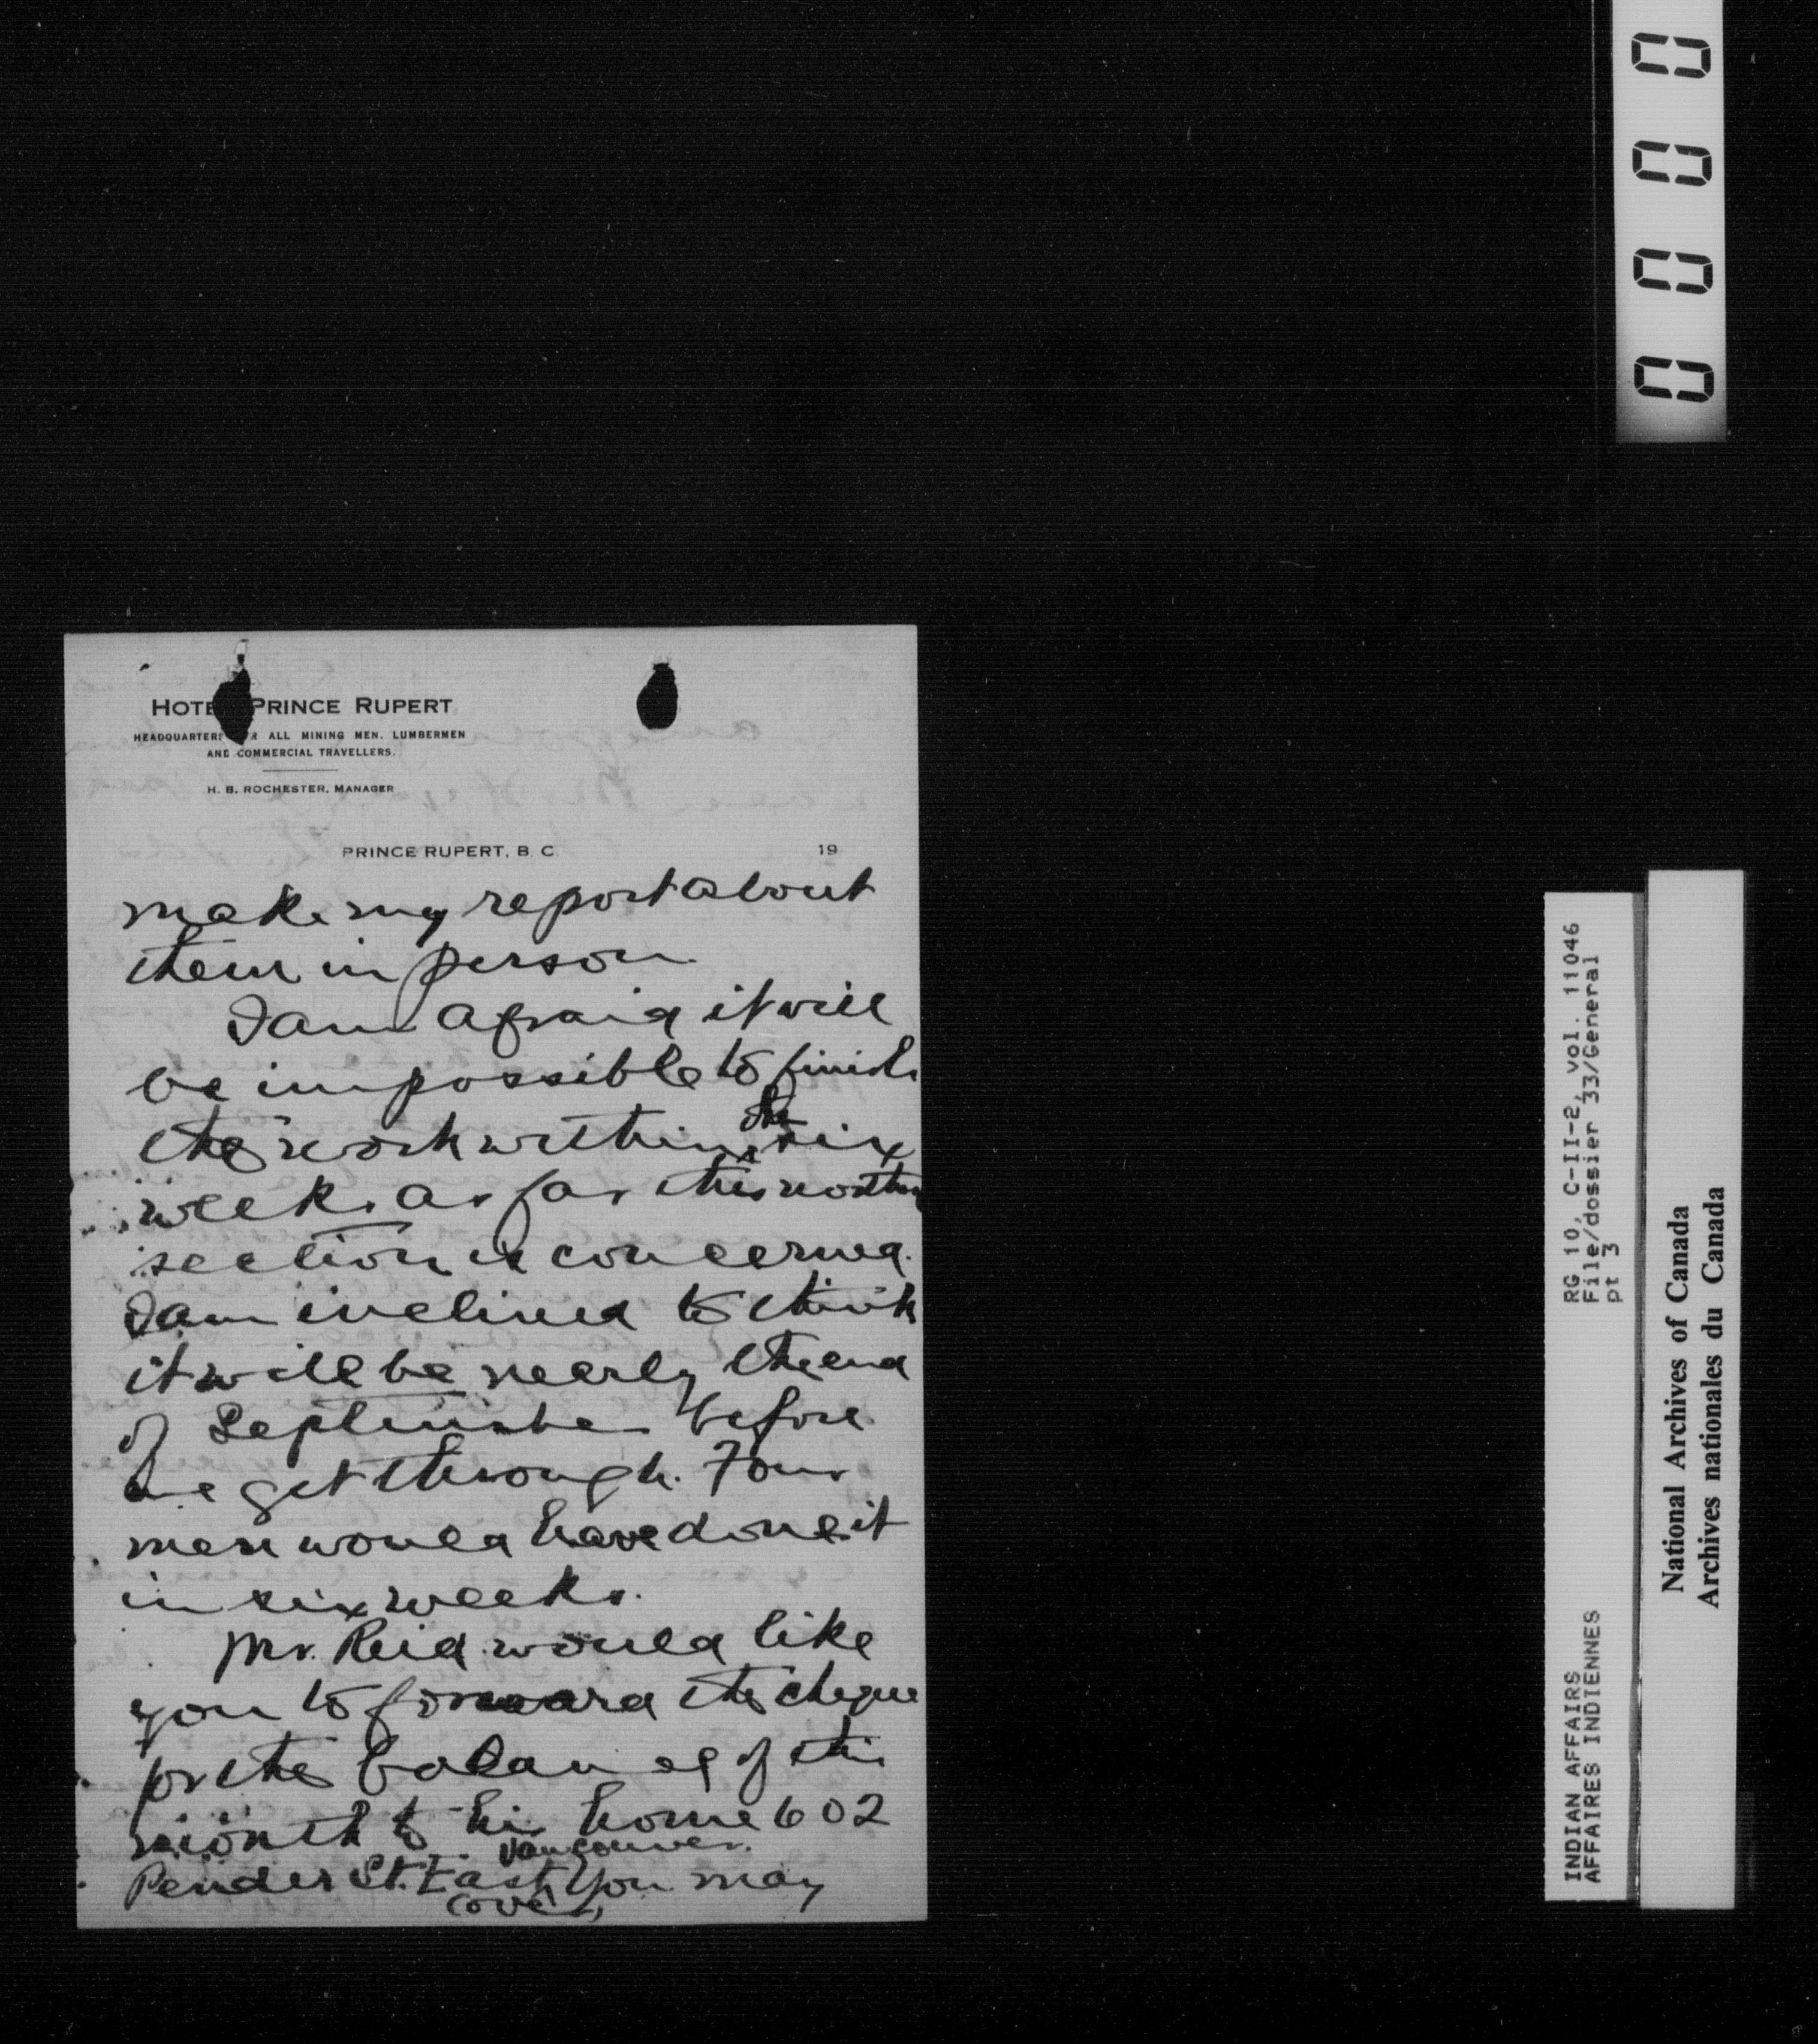 HOTEL PRINCE RUPERT
HEADQUARTERS FOR ALL MINING MEN. LUMBERMEN
AND COMMERCIAL TRAVELLERS.
H. B. ROCHESTER, MANAGER
PRINCE RUPERT, B. C. 19
make my report about
them in person.
I am afraid it will
be impossible to finish
the work within the six
weeks as far this northern
section is concerned.
I am inclined to think
it will be nearly the end
of September before
we get through. Four
men would have done it
in six weeks.
Mr. Reid would like
you to forward the cheque
for the balance of this
month to his home 602
Pender St. East Vancouver. You may
(over)
0000
RG 10, C-II-2, vol. 11046
File/dossier 33/General
pt 3
INDIAN AFFAIRS
AFFAIRES INDIENNES
National Archives of Canada
Archives nationales du Canada